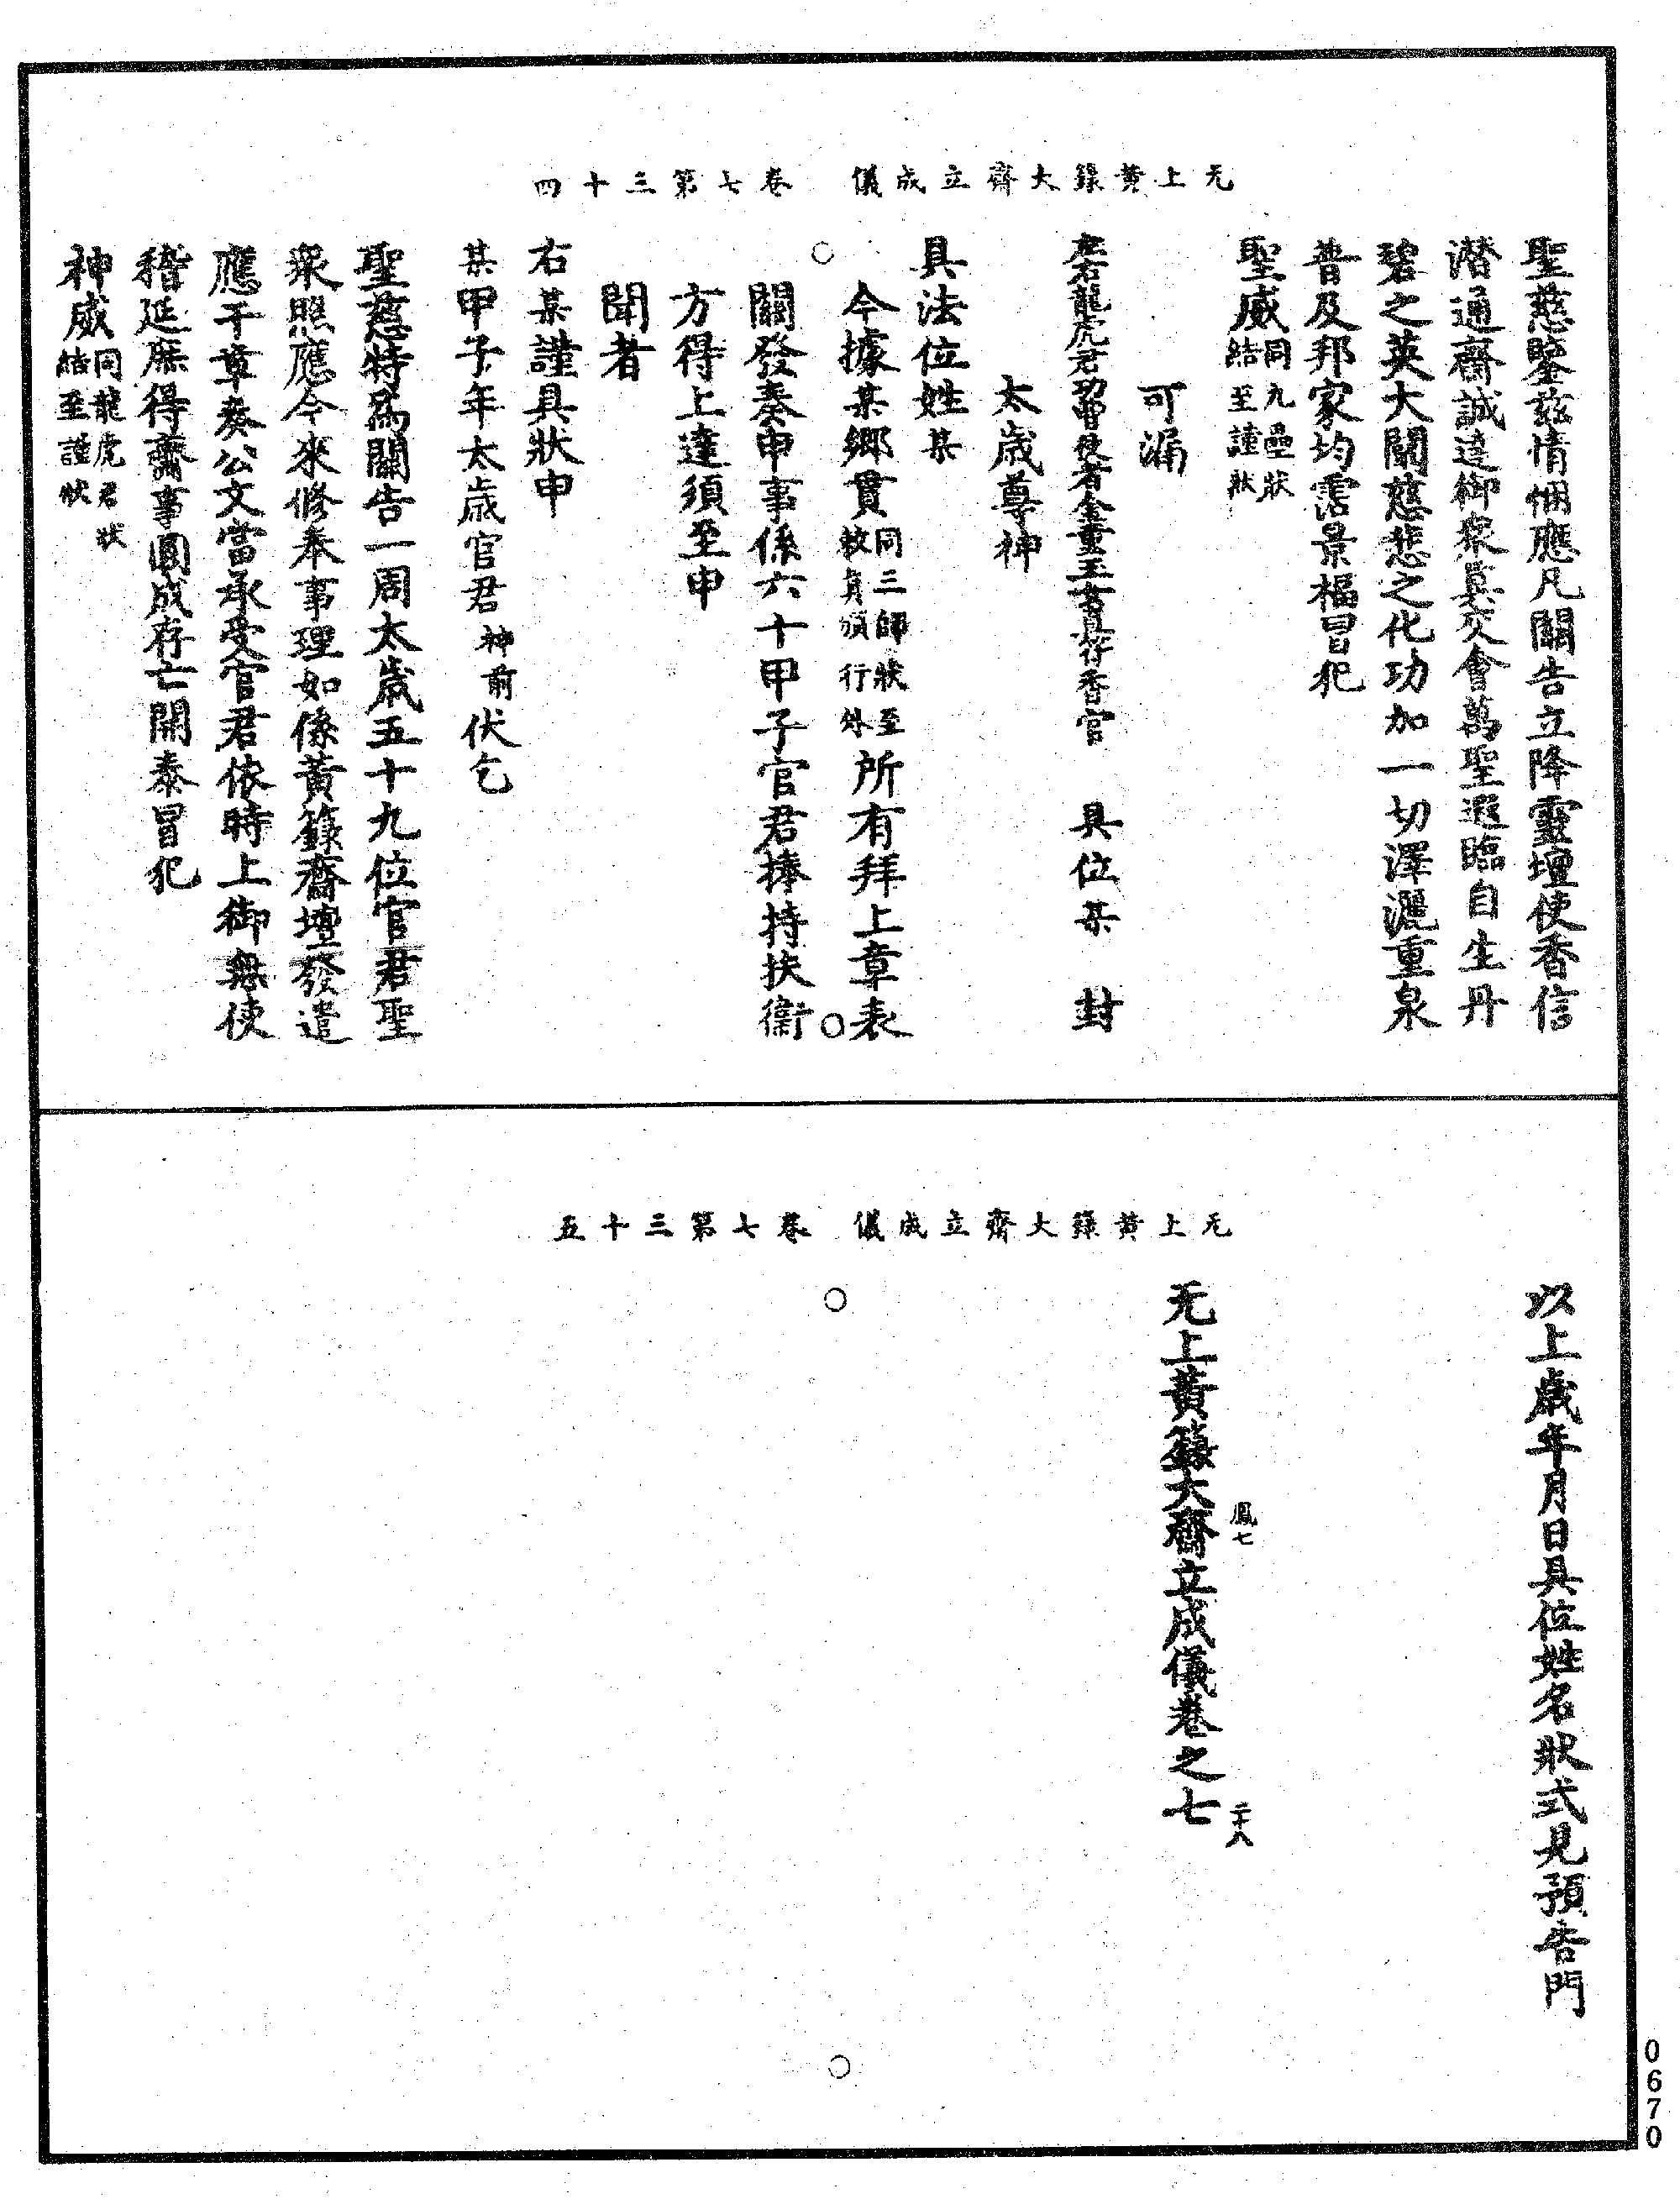 无上黃籙大齋立成儀　卷七第三十四
聖慈鑒茲情悃應凡關告立降靈壇使香信
潛通齋誠達御眾真交會萬聖遐臨自生丹
碧之英大闡慈悲之化功加一切澤灑重泉
普及邦家均霑景福冒犯
聖威同九壘狀結至謹狀
可漏
龍虎君功曹使者金童玉女直符香官　具位某　封
太歲尊神
具法位姓某
今據某鄉貫同三師狀至敕旨頒行外所有拜上章表
關發奏申事係六十甲子官君捧持扶衛
方得上達須至申
聞者
右某謹具狀申
某甲子年太歲官君神前伏乞
聖慈特為關告一周太歲五十九位官君聖
眾照應今來修奉事理如係黃籙齋壇發遣
應干章奏公文當承受官君依時上御無使
稽延庶得齋事圓成存亡開泰冒犯
神威同龍虎君狀結至謹狀
无上黃籙大齋立成儀　卷七第三十五
以上歲年月日具位姓名狀式見預告門
无上黃籙大齋立成儀卷之七
鳳七
二十八
0670